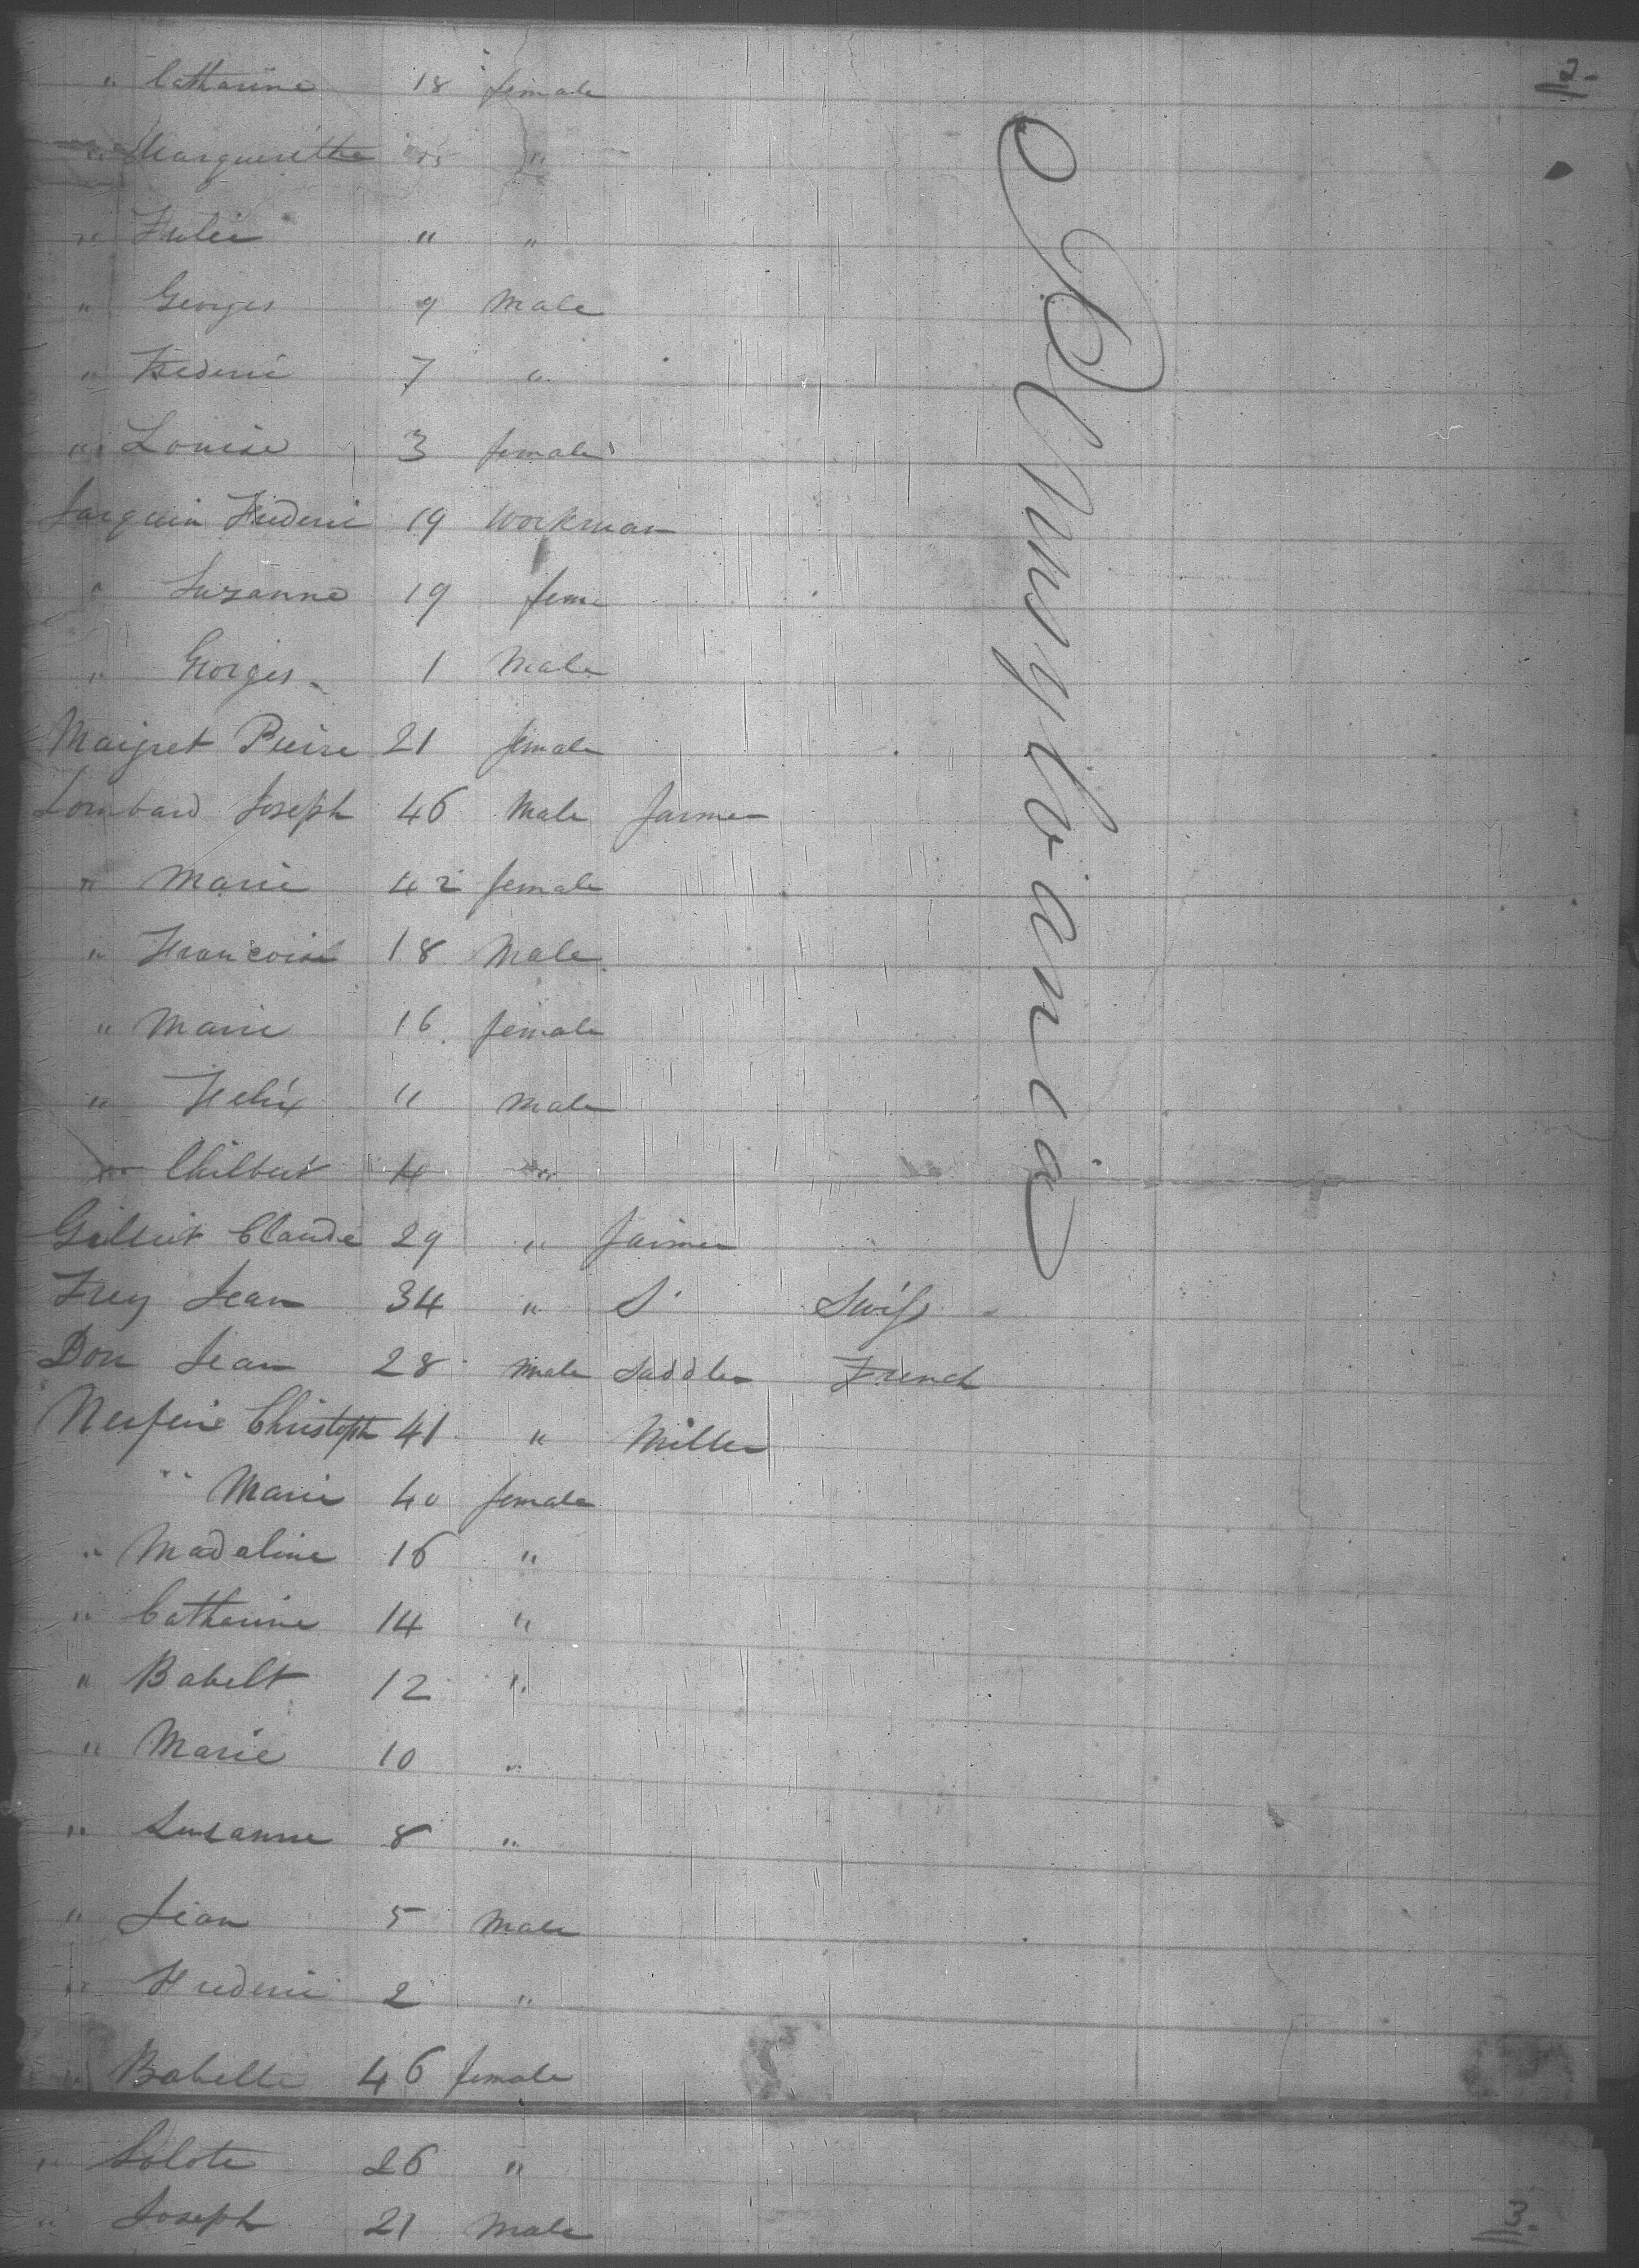 2-
" Catharine 18 female
" Marguerithe 15 "
" Julie 11 "
" Georges 9 Male
" Frederic 7 "
" Louise 3 female
Jacquin Frederic 19 Workman
" Suzanne 19 feme
" Georges 1 Male
Maigret Pierre 21 female
Lombard Joseph 46 Male farmer
" Marie 42 female
" Francoise 18 Male
" Marie 16 female
" Felix 11 Male
" 4 "
Claude 29 " farmer
Frey Jean 34 " Swiss
Don Jean 28 Male Saddler French
Christoph 41 " Miller
" Marie 40 female
" Madaline 16 "
" Catharine 14 "
" Babelt 12 "
" Marie 10 "
" Suzanne 8 "
" Jean 5 Male
" Frederic 2 "
" Babelle 46 female
" 26 "
" Joseph 21 Male
Pennsylvania
3-